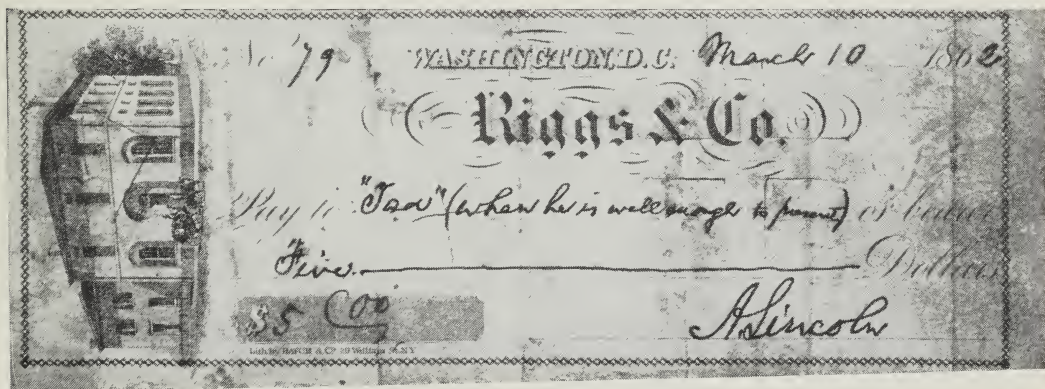 No 79 WASHINGTON, D.C. March 10 1862
Riggs & Co.
Pay to "Tad" (when he is well enough to present) or bearer
Five Dollars
$5 00
A. Lincoln
Lith by HATCH & Co